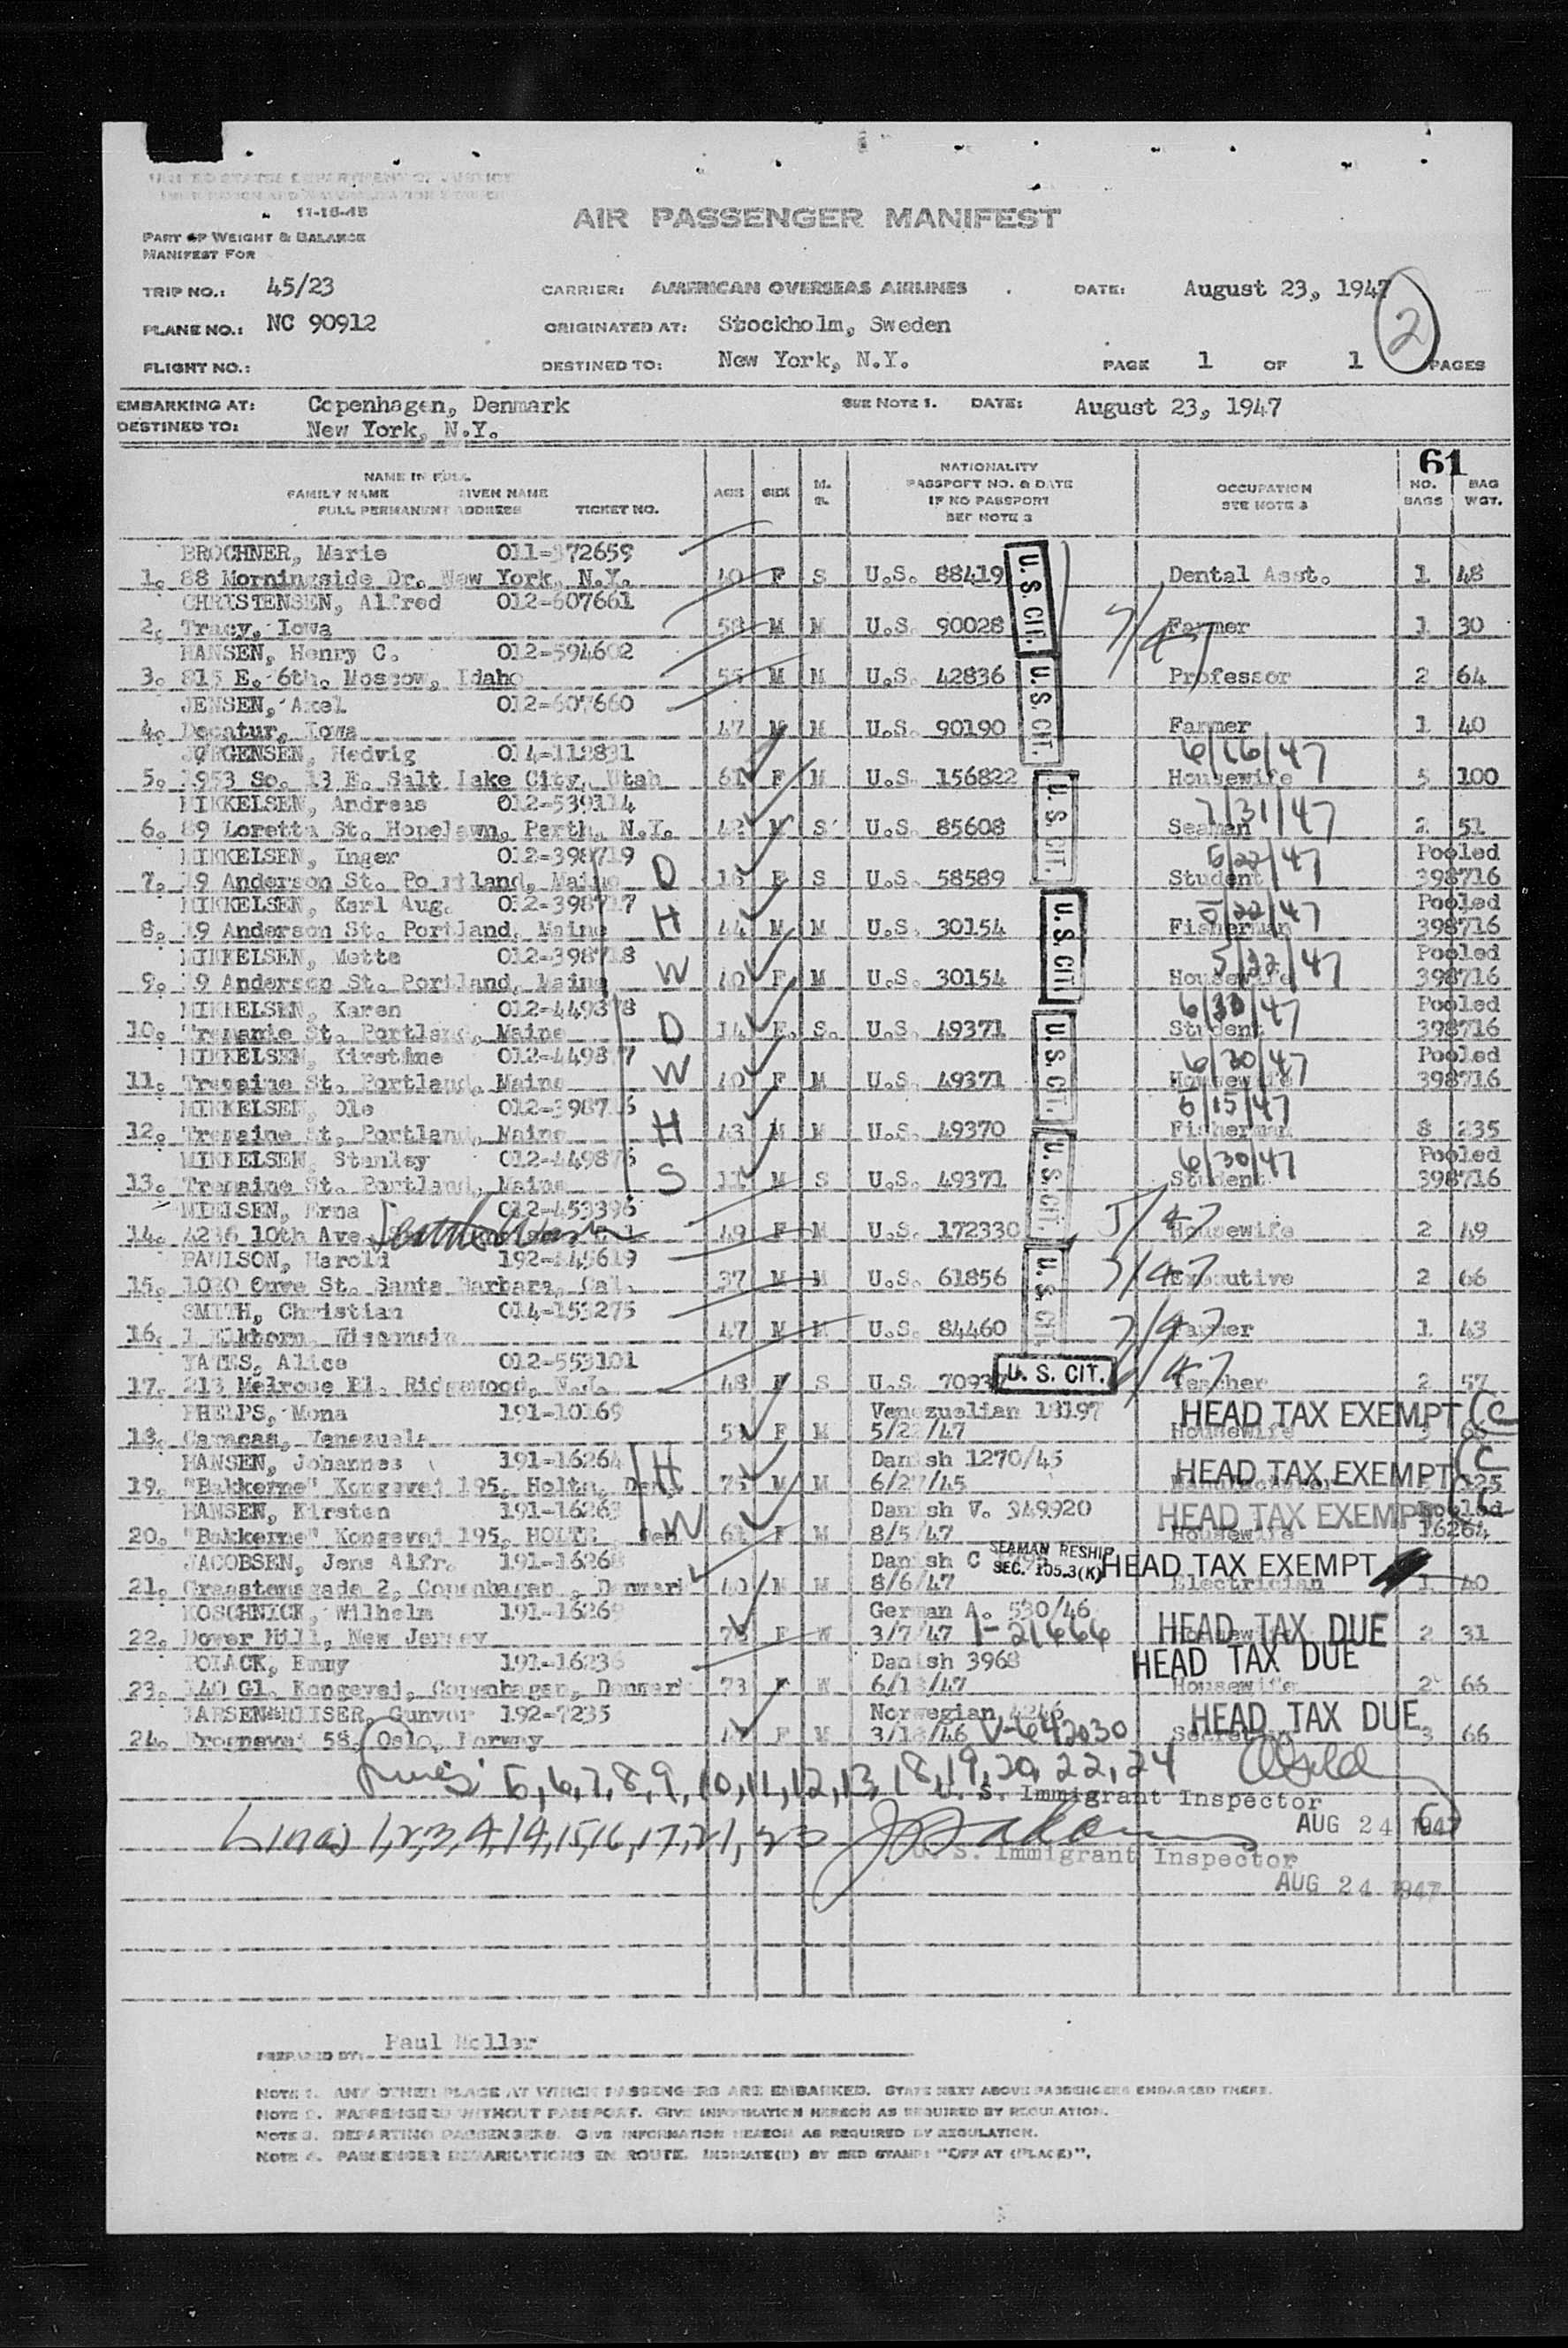 UNITED STATES DEPARTMENT OF JUSTICE
11-16-45
AIR PASSENGER MANIFEST
PART OF WEIGHT & BALANCE
MANIFEST FOR
TRIP NO.: 45/23 CARRIER: AMERICAN OVERSEAS AIRLINES DATE: August 23, 1947
PLANE NO.: NC 90912 ORIGINATED AT: Stockholm, Sweden 2
FLIGHT NO.: DESTINED TO: New York, N.Y. PAGE 1 OF 1 PAGES
EMBARKING AT: Copenhagen, Denmark SEE NOTE 1. DATE: August 23, 1947
DESTINED TO: New York, N.Y.
61
NAME IN FULL
FAMILY NAME GIVEN NAME
FULL PERMANENT ADDRESS TICKET NO. AGE SEX M. S.
NATIONALITY
PASSPORT NO. & DATE
IF NO PASSPORT
SEE NOTE 2
OCCUPATION
SEE NOTE 3
NO. BAGS
BAG WGT.
BROCHNER, Marie 011-372659
1. 88 Morningside Dr. New York, N.Y. 40 F S U.S. 88419 U.S. CIT. Dental Asst. 1 48
CHRISTENSEN, Alfred 012-607661
2. Tracy, Iowa 58 M M U.S. 90028 7/47 Farmer 1 30
HANSEN, Henry C. 012-594602
3. 815 E. 6th. Moscow, Idaho 55 M M U.S. 42836 U.S. CIT. Professor 2 64
JENSEN, Axel 012-607660
4. Decatur, Iowa 47 M M U.S. 90190 Farmer 1 40
JØRGENSEN, Hedvig 014-112831 6/16/47
5. 1953 So. 13 E. Salt Lake City, Utah 61 F M U.S. 156822 Housewife 5 100
MIKKELSEN, Andreas 012-539114 U.S. CIT. 7/31/47
6. 89 Loretta St. Hopelawn, Perth, N.Y. 42 M S U.S. 85608 Seaman 2 51
MIKKELSEN, Inger 012-398719 5/22/47 Pooled
7. 19 Anderson St. Portland, Maine D 16 F S U.S. 58589 Student 398716
MIKKELSEN, Karl Aug. 012-398717 5/22/47 Pooled
8. 19 Anderson St. Portland, Maine H 44 M M U.S. 30154 U.S. CIT. Fisherman 398716
MIKKELSEN, Mette 012-398718 5/22/47 Pooled
9. 19 Anderson St. Portland, Maine W 40 F M U.S. 30154 Housewife 398716
MIKKELSEN, Karen 012-449878 6/30/47 Pooled
10. Tremaine St. Portland, Maine D 14 F. S. U.S. 49371 U.S. CIT. Student 398716
MIKKELSEN, Kirstine 012-449877 6/30/47 Pooled
11. Tremaine St. Portland, Maine W 40 F M U.S. 49371 Housewife 398716
MIKKELSEN, Ole 012-398716 6/15/47
12. Tremaine St. Portland, Maine H 43 M M U.S. 49370 Fisherman 8 235
MIKKELSEN, Stanley 012-449876 6/30/47 Pooled
13. Tremaine St. Portland, Maine S 11 M S U.S. 49371 U.S. CIT. Student 398716
NIELSEN, Erna 012-453396
14. 4236 10th Ave. 49 F M U.S. 172330 5/47 Housewife 2 49
PAULSON, Harold 192-445619
15. 1020 St. Santa Barbara, Cal. 37 M M U.S. 61856 U.S. CIT. 7/47 Executive 2 66
SMITH, Christian 014-153275
16. 1 Elkhorn, Wisconsin 47 M M U.S. 84460 7/47 Farmer 1 43
YATES, Alice 012-553101
17. 213 Melrose Pl. Ridgewood, N.J. 48 F S U.S. 7093 U. S. CIT. /47 Teacher 2 57
PHELPS, Mona 191-10169 Venezuelian 18197 HEAD TAX EXEMPT C
18. Caracas, Venezuela F M Housewife
HANSEN, Johannes 191-16264 Danish 1270/45 HEAD TAX EXEMPT C
19. "Bakkerne" Kongevej 195, Holte, Den. H 75 M M 6/27/45 125
HANSEN, Kirsten 191-16263 Danish V. 349920 HEAD TAX EXEMPT Pooled
20. "Bakkerne" Kongevej 195, HOLTE Den W 61 F M 8/5/47 Housewife 16264
JACOBSEN, Jens Alfr. 191-16268 Danish C SEAMAN RESHIP SEC. 105.3(K) HEAD TAX EXEMPT
21. Graastensgade 2, Copenhagen, Denmark 40 M M 8/6/47 Electrician 1 40
KOSCHNICK, Wilhelm 191-16269 German A. 530/46
22. Dover Hill, New Jersey F W 3/7/47 I-21466 HEAD TAX DUE 2 31
POLACK, Emmy 191-16236 Danish 3968 HEAD TAX DUE
23. 140 Gl. Kongevej, Copenhagen, Denmark 73 F W 6/18/47 Housewife 2 66
LARSEN-REISER, Gunvor 192-7235 Norwegian 4246 HEAD TAX DUE
24. Frognevej 58, Oslo, Norway F M 3/18/46 V-642030 3 66
Lines 5,6,7,8,9,10,11,12,13,18,19,20,22,24
U. S. Immigrant Inspector
AUG 24 1947
Lines 1,2,3,4,14,15,16,17,21,23
U. S. Immigrant Inspector
AUG 24 1947
PREPARED BY: Paul Moller
NOTE 1. ANY OTHER PLACE AT WHICH PASSENGERS ARE EMBARKED. STATE NEXT ABOVE PASSENGERS EMBARKED THERE.
NOTE 2. PASSENGERS WITHOUT PASSPORT. GIVE INFORMATION HEREON AS REQUIRED BY REGULATION.
NOTE 3. DEPARTING PASSENGERS. GIVE INFORMATION HEREON AS REQUIRED BY REGULATION.
NOTE 4. PASSENGER DEBARKATIONS EN ROUTE. INDICATE(D) BY RED STAMP: "OFF AT (PLACE)".